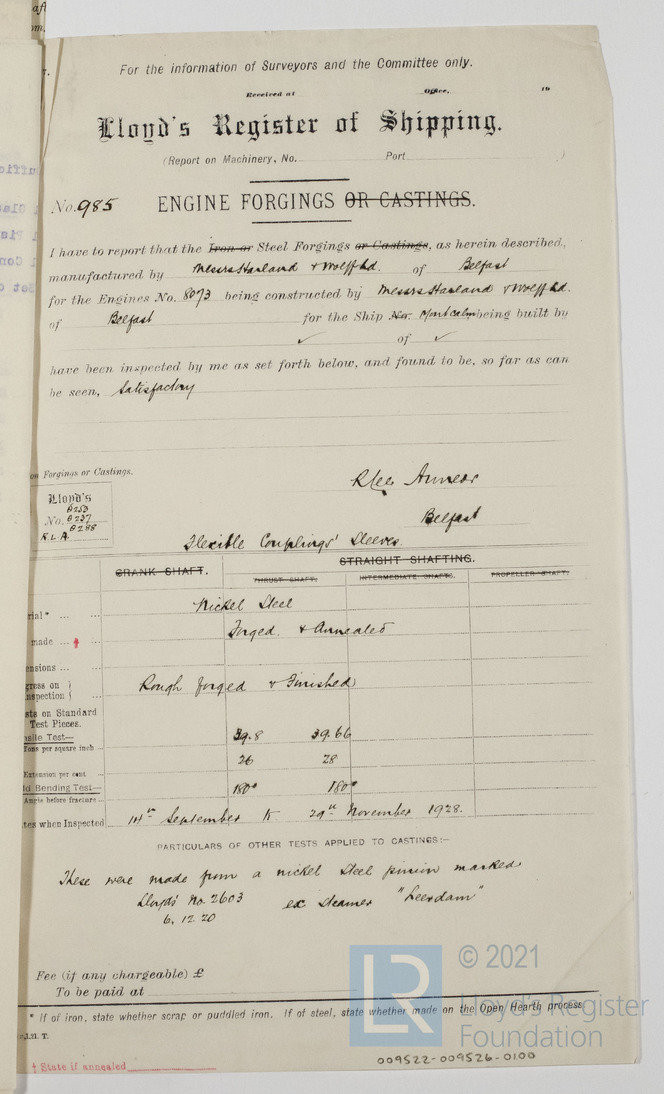 For the information of Surveyors and the Committee only.
Received at Office, 19
Lloyd's Register of Shipping.
(Report on Machinery, No. Port )
No. 985 ENGINE FORGINGS OR CASTINGS.
I have to report that the Iron or Steel Forgings or Castings, as herein described,
manufactured by Messrs Harland & Wolff Ld. of Belfast
for the Engines No. 8073 being constructed by Messrs Harland & Wolff Ld.
of Belfast for the Ship No. Montcalm being built by
✓ of ✓
have been inspected by me as set forth below, and found to be, so far as can
be seen, Satisfactory
on Forgings or Castings.
R Lee Annear
Lloyd's
8253
No. 8237
8288
R.L.A.
Belfast
Flexible Couplings' Sleeves.
CRANK SHAFT. STRAIGHT SHAFTING.
THRUST SHAFT. INTERMEDIATE SHAFTS. PROPELLER SHAFT.
rial * ... Nickel Steel
made ... † Forged & Annealed
ensions ...
gress on
nspection Rough forged & Finished
sts on Standard
Test Pieces.
nsile Test— 39.8 39.66
Tons per square inch
Extension per cent. 26 28
ld Bending Test— 180° 180°
Angle before fracture
tes when Inspected 14th September to 29th November 1928.
PARTICULARS OF OTHER TESTS APPLIED TO CASTINGS:—
These were made from a nickel Steel pinion marked
Lloyds' No. 2603 ex Steamer "Leerdam"
6.12.20
Fee (if any chargeable) £
To be paid at
* If of iron, state whether scrap or puddled iron. If of steel, state whether made on the Open Hearth process
† State if annealed
009522-009526-0100
LR © 2021
Lloyd's Register
Foundation